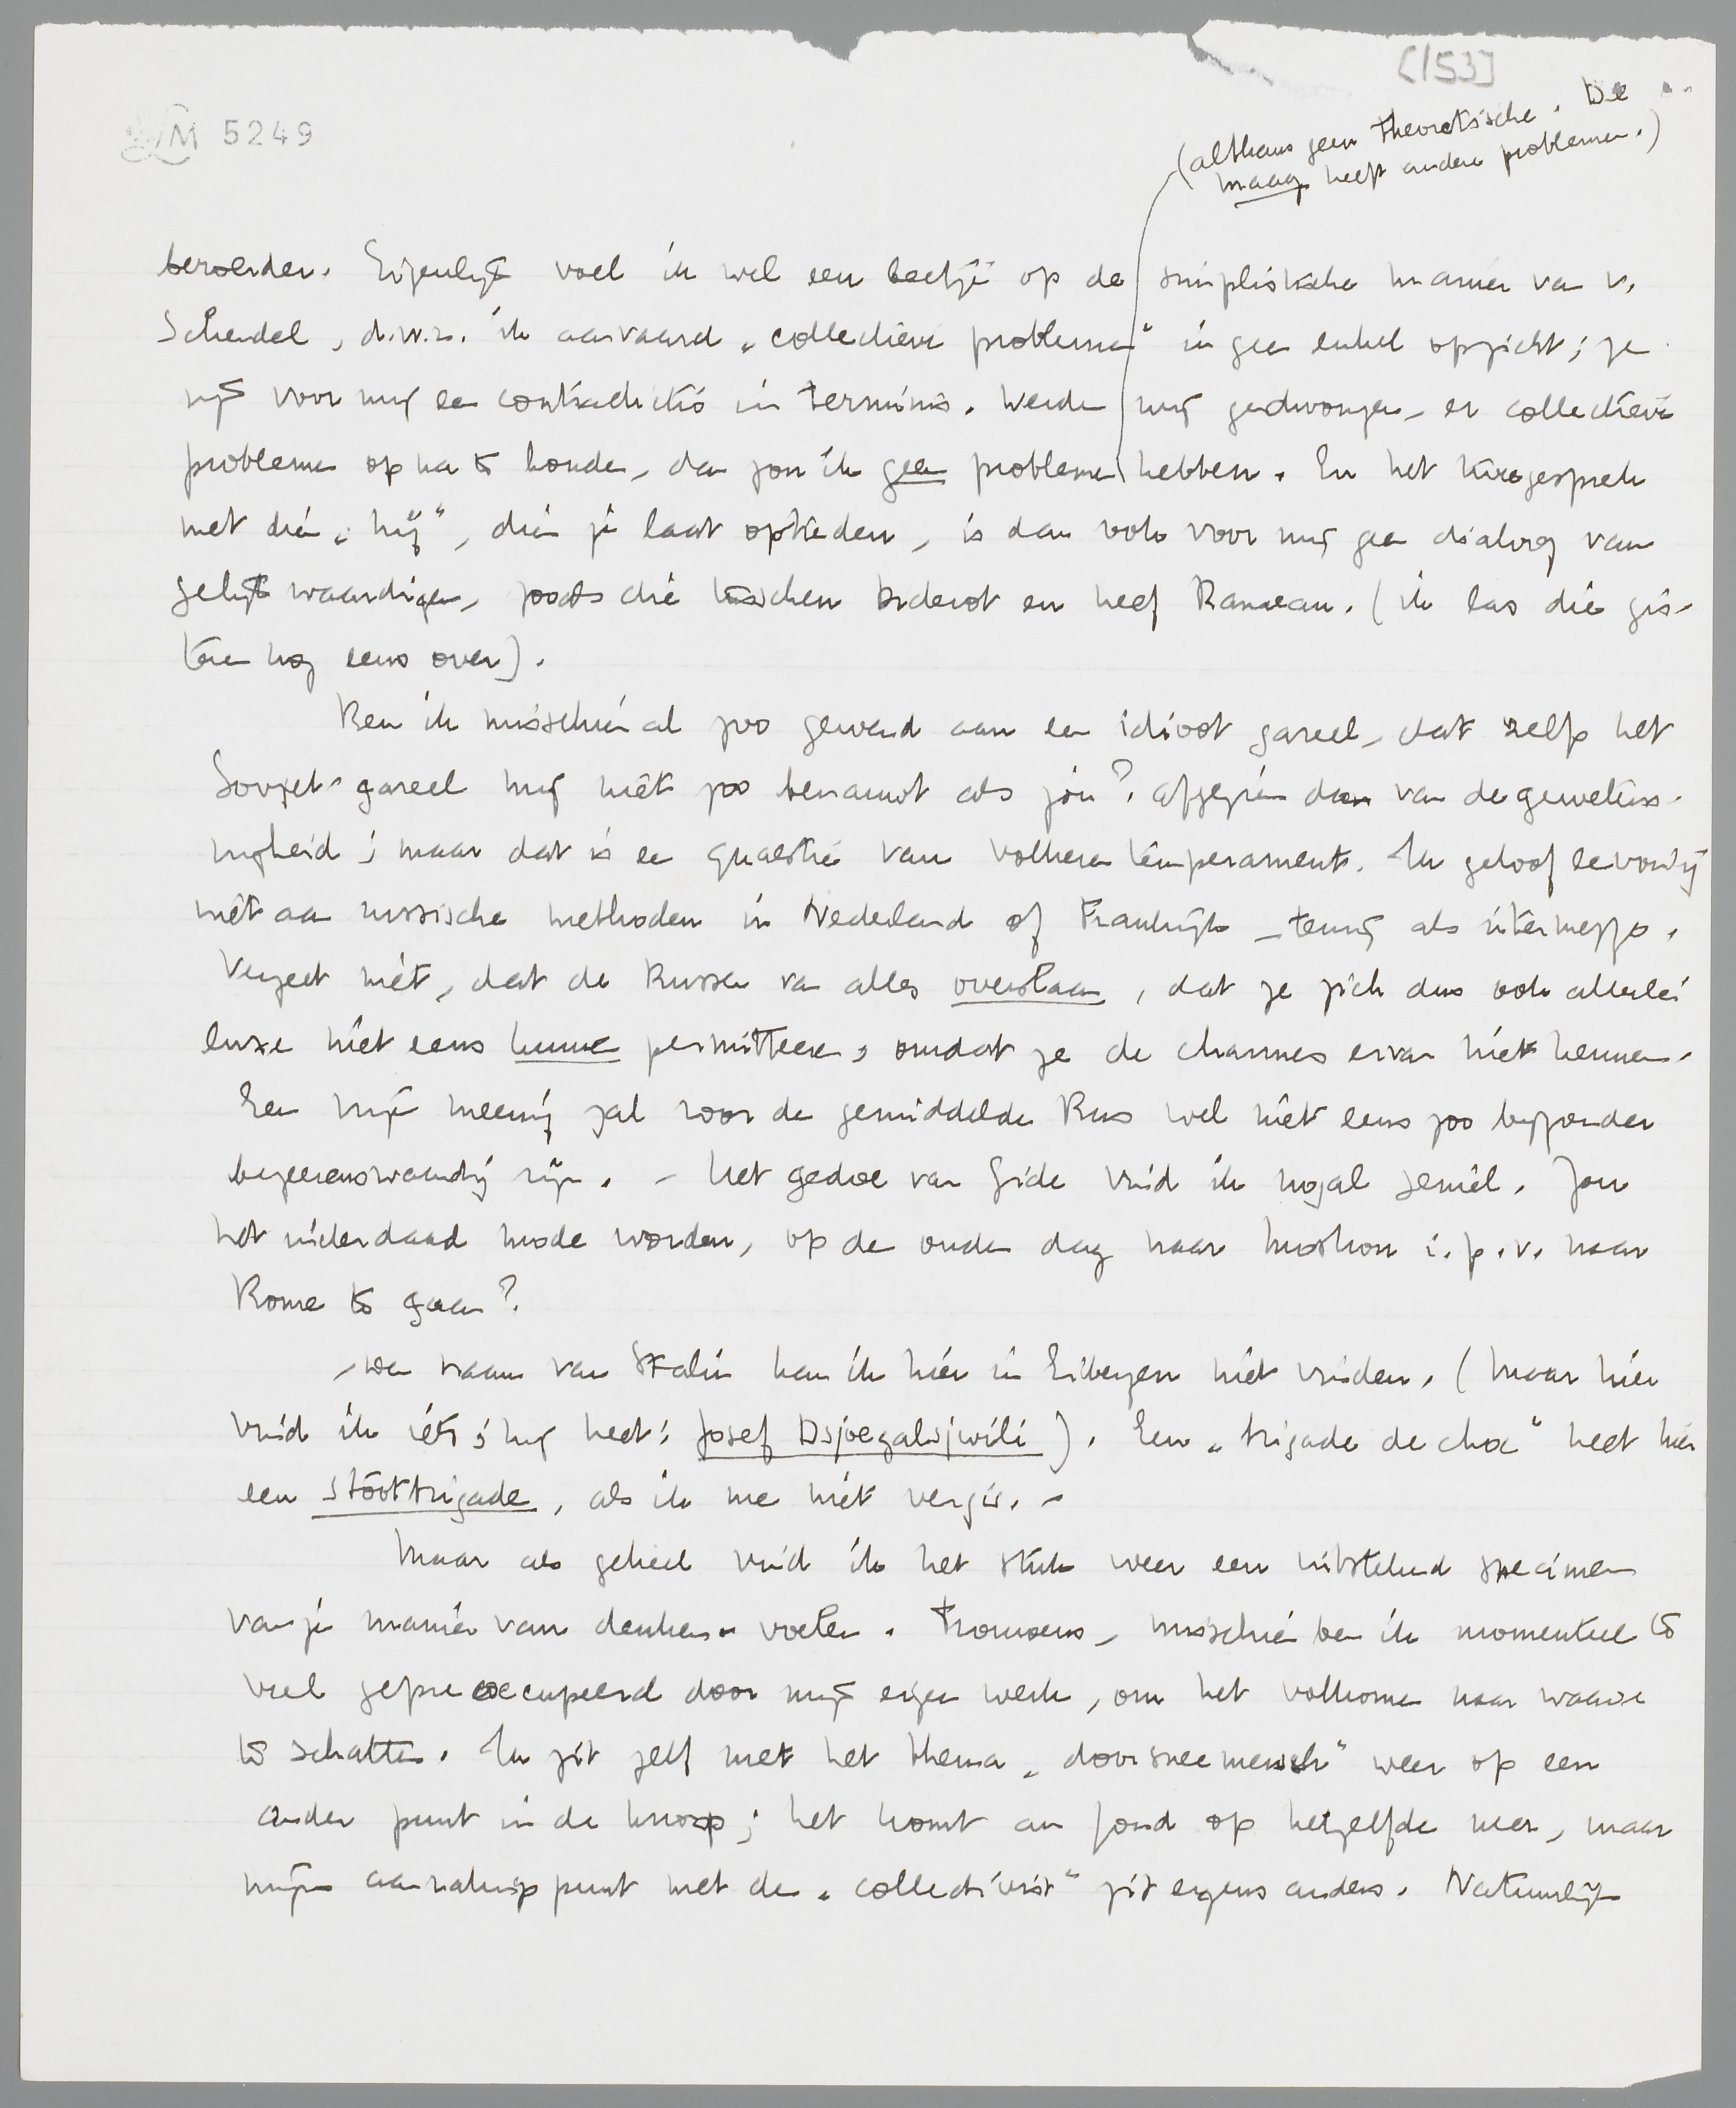 [153]
LM 5249
(althans geen theoretische. De
maag heeft andere problemen.)
beroerder. Eigenlijk voel ik wel een beetje op de simplistische manier van v.
Schendel, d.w.z. ik aanvaard „collectieve problemen” in geen enkel opzicht; ze
zijn voor mij een contradictio in terminis. Werden mij gedwongen, er collectieve
problemen op na te houden, dan zou ik geen problemen hebben. En het tweegesprek
met dien „hij”, dien je laat optreden, is dan ook voor mij geen dialoog van
gelijkwaardigen, zooals die tusschen Diderot en neef Rameau. (ik las die gis-
teren nog eens over).
Ben ik misschien al zoo gewend aan een idioot gareel, dat zelfs het
Sovjet-gareel mij niet zoo benauwt als jou? Afgezien dan van de gewetens-
nigheid; maar dat is een quaestie van volkeren temperament. Ik geloof eenvoudig
niet aan russische methoden in Nederland of Frankrijk – tenzij als intermezzo.
Vergeet niet, dat de Russen van alles overslaan, dat ze zich dus ook allerlei
luxe niet eens kunnen permitteeren, omdat ze de charmes ervan niet kennen.
Een vrije meening zal voor de gemiddelde Rus wel niet eens zoo bijzonder
begeerenswaardig zijn. – Het gedoe van Gide vind ik nogal seniel. Zou
het inderdaad mode worden, op de ouden dag naar Moskou i.p.v. naar
Rome te gaan?
– De naam van Stalin kan ik hier in Eibergen niet vinden. (Maar hier
vind ik iets; hij heet: Josef Dsjoegalsjwili). Een „brigade de choc” heet hier
een stootbrigade, als ik me niet vergis. –
Maar als geheel vind ik het stuk weer een uitstekend specimen
van je manier van denken en voelen. Trouwens, misschien ben ik momenteel te
veel gepreoccupeerd door mijn eigen werk, om het volkomen naar waarde
te schatten. Ik zit zelf met het thema „doorsneemensch” weer op een
ander punt in de knoop; het komt au fond op hetzelfde neer, maar
mijn aanrakingspunt met de „collectivist” zit ergens anders. Natuurlijk